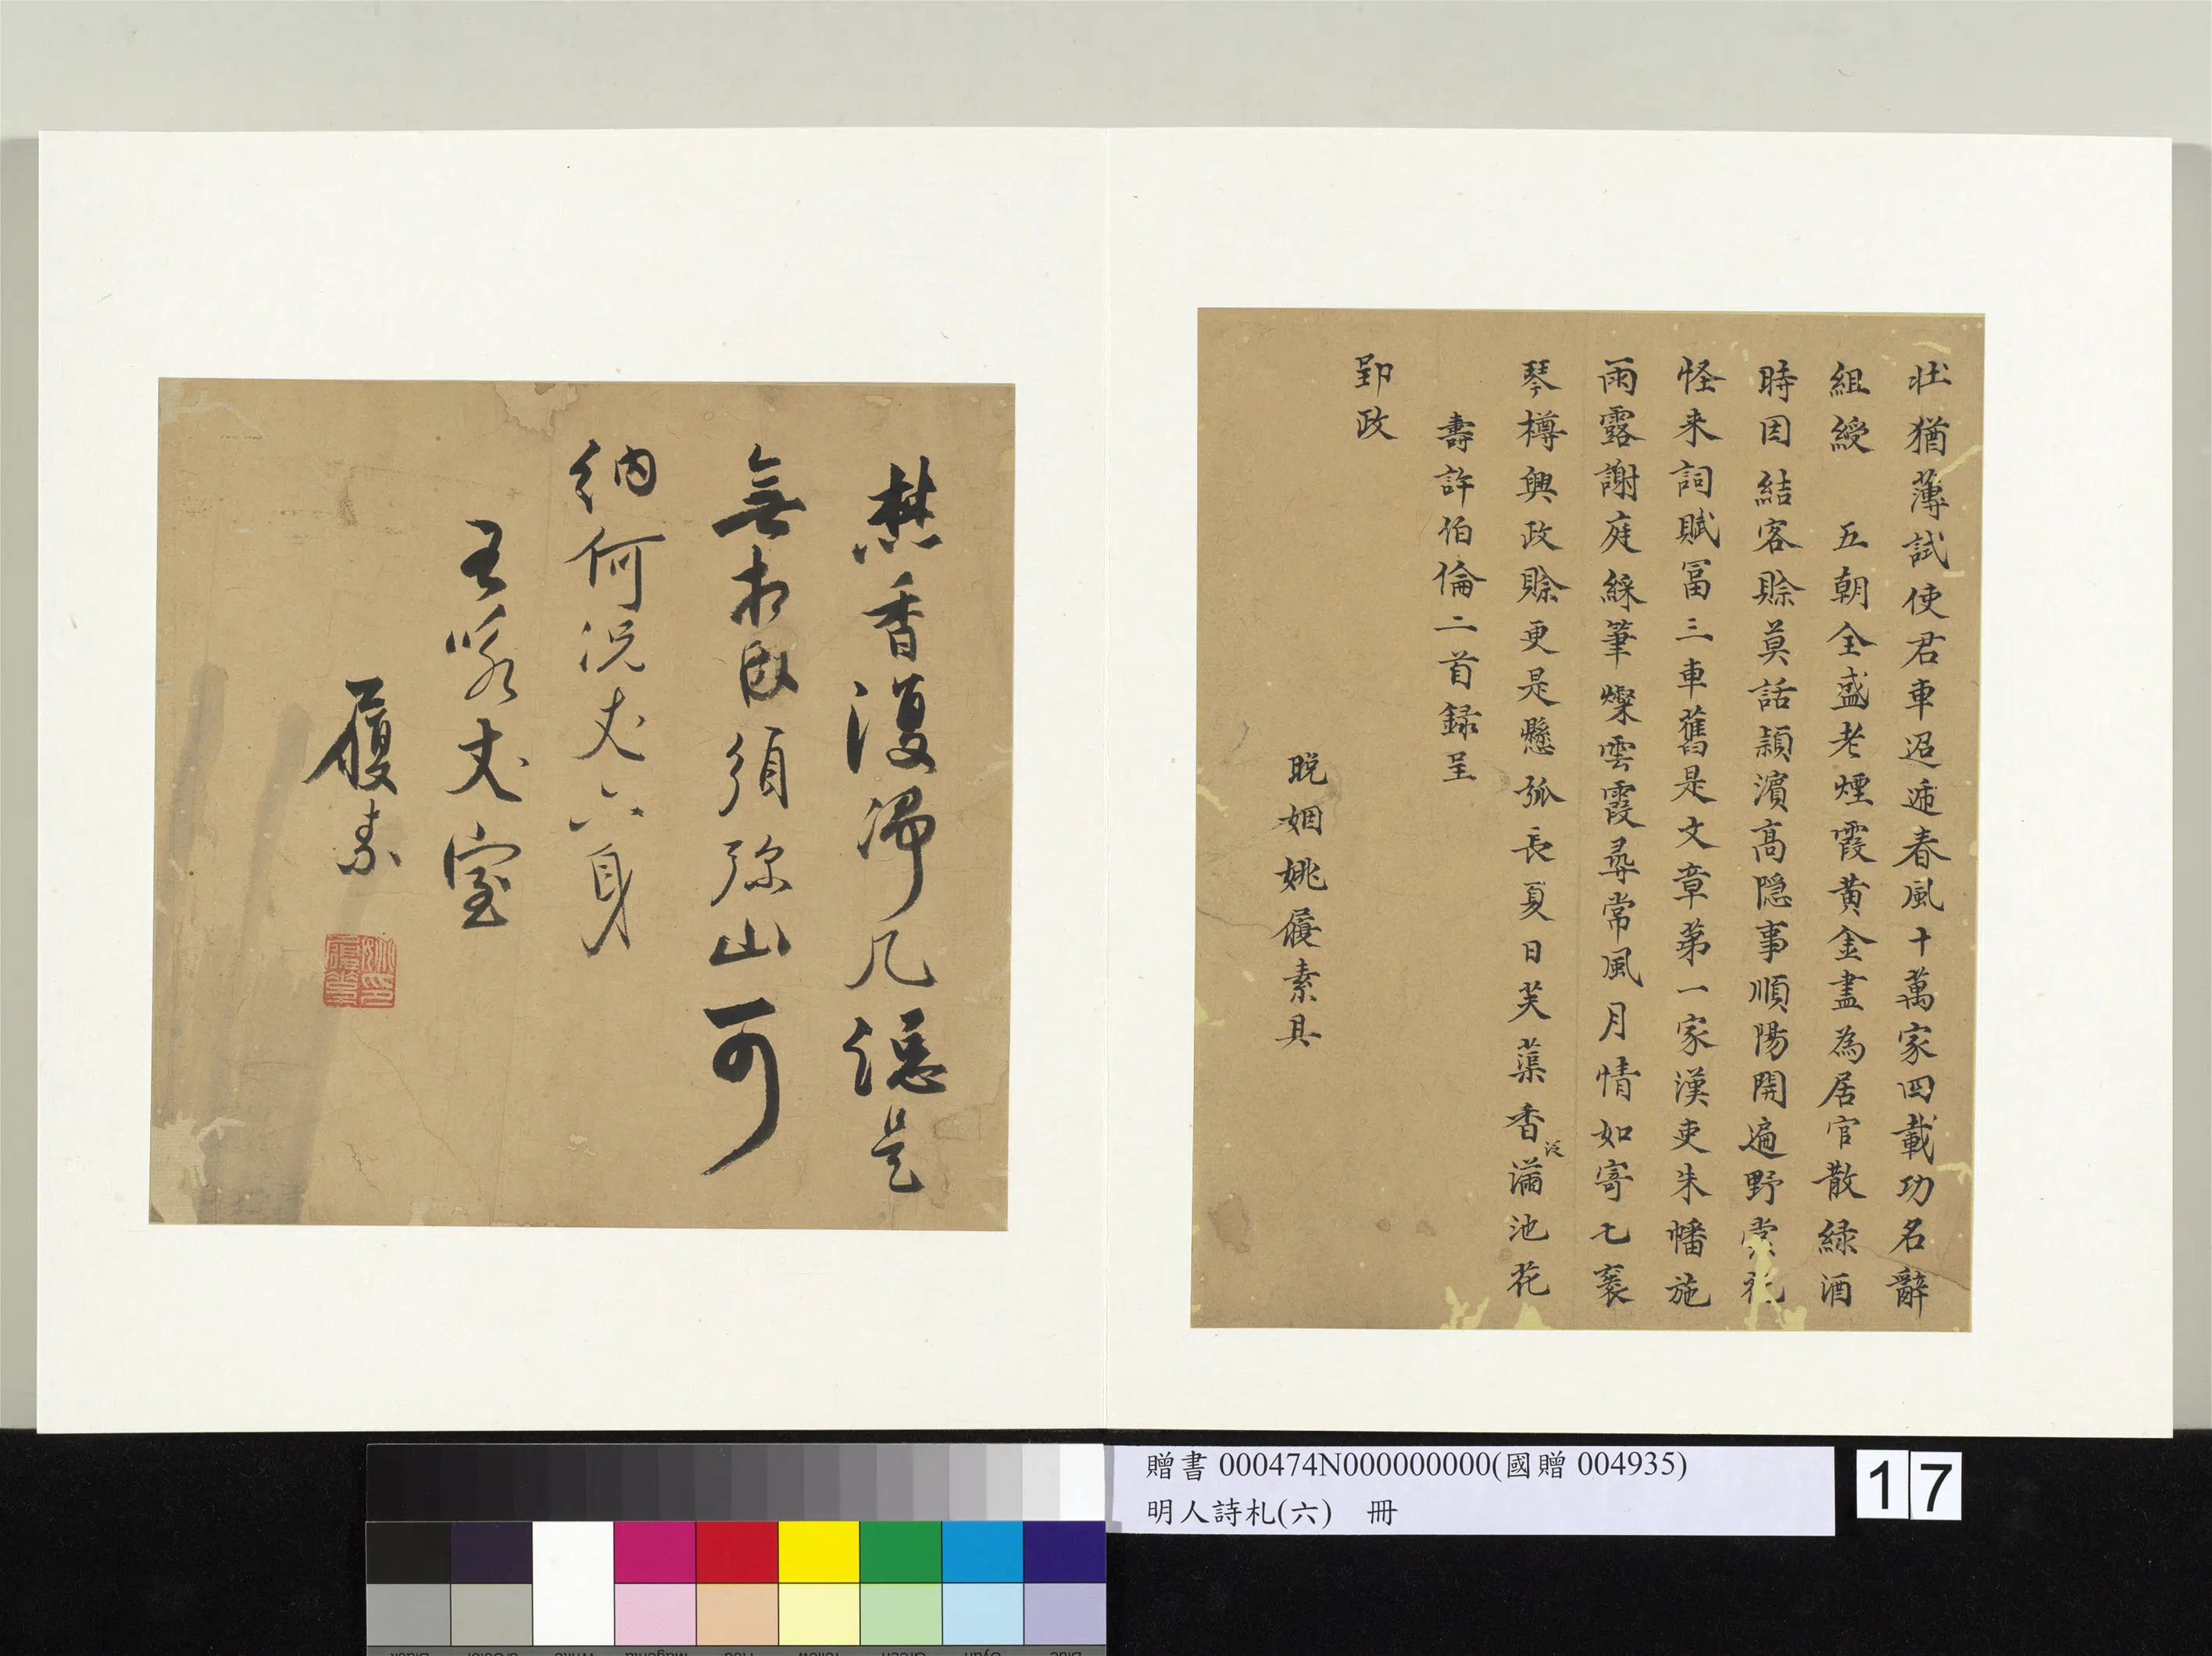 壯猶薄試使君車迢遞春風十萬家四載功名辭
組綬　五朝全盛老煙霞黃金盡為居官散綠酒
時因結客賒莫話潁濱高隱事順陽開遍野棠花
怪来詞賦冨三車舊是文章第一家漢吏朱幡施
雨露謝庭綵筆燦雲霞尋常風月情如寄七袠
琴樽興政賒更是懸弧長夏日芙蕖香滿池花
泛
壽許伯倫二首録呈
郢政
晚姻姚履素具
焚香復淨几隱是
無相臥須弥山可
納何況丈六身
玉峩丈室
履素
姚印履素
贈書 000474N000000000(國贈 004935)
明人詩札(六)　冊
17